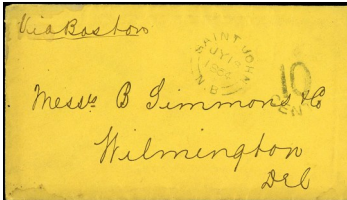 Via Boston
SAINT JOHN
JY 19
N.B.
10
CEN
Messrs B Simmons & Co
Wilmington
Del